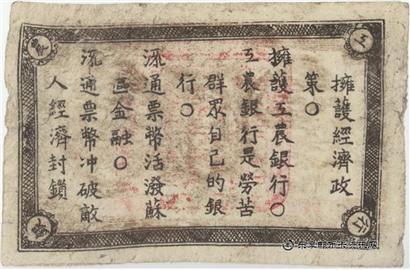 擁護經濟政
策〇
擁護工農銀行〇
工農銀行是勞苦
群眾自己的銀
行〇
流通票幣活潑蘇
區金融〇
流通票幣冲破敵
人經濟封鎖